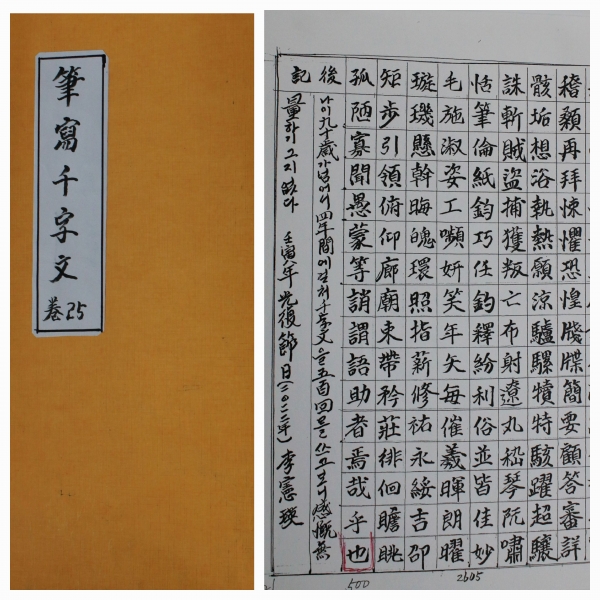 筆寫千字文
卷25
稽顙再拜悚懼恐惶牋牒簡要顧答審詳
骸垢想浴執熱願涼驢騾犢特駭躍超驤
誅斬賊盜捕獲叛亡布射遼丸嵇琴阮嘯
恬筆倫紙鈞巧任釣釋紛利俗並皆佳妙
毛施淑姿工嚬姸笑年矢每催羲暉朗曜
璇璣懸幹晦魄環照指薪修祐永綏吉邵
短步引領俯仰廊廟束帶矜莊徘徊瞻眺
孤陋寡聞愚蒙等誚謂語助者焉哉乎也
後記
나이 九十歲가 넘어서 四年間에 걸쳐 千字文을 五百回를 쓰고보니 感慨無
量하기 그지 없다 壬寅八年 光復節日(二〇二二年) 李憲
500
2605